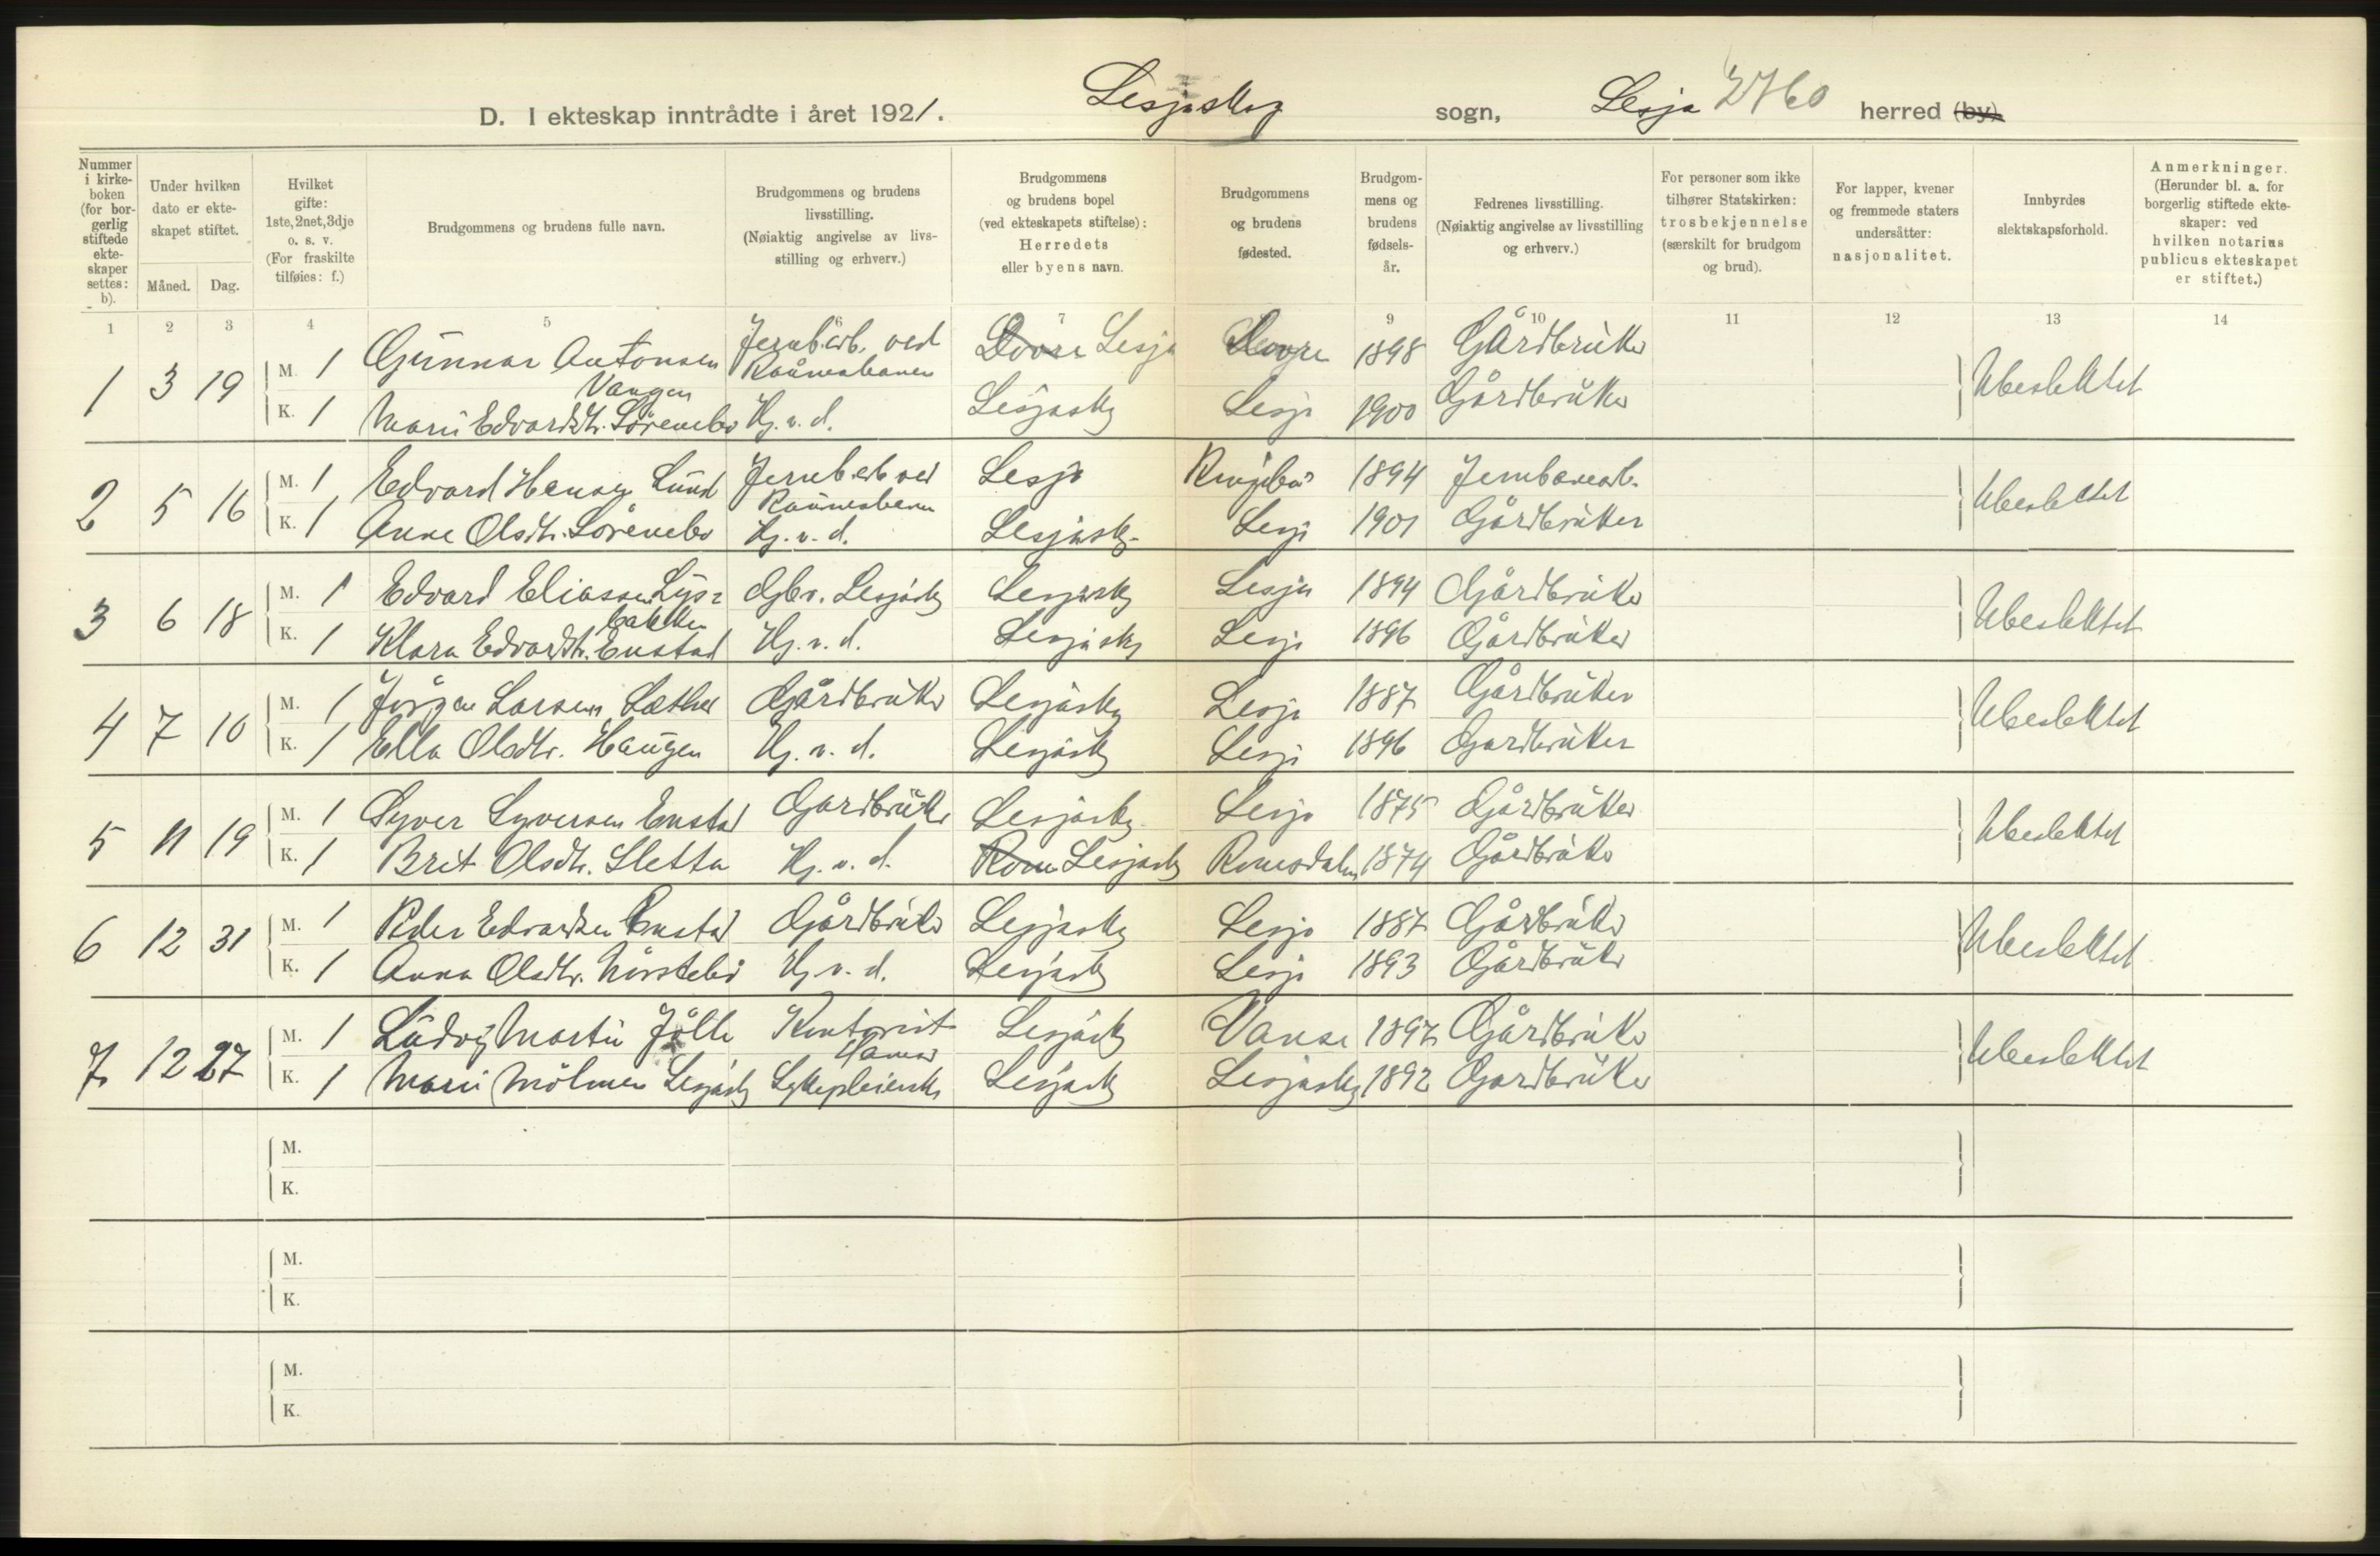 D. I ekteskap inntrådte i året 1921. Lesjaskog sogn, Lesja 2760 herred (by)
Nummer i kirke-boken (for bor-gerlig stiftede ekte-skaper settes: b).
Under hvilken dato er ekte-skapet stiftet.
Måned. Dag.
Hvilket gifte: 1ste, 2net, 3dje o. s. v. (For fraskilte tilføies: f.)
Brudgommens og brudens fulle navn.
Brudgommens og brudens livsstilling. (Nøiaktig angivelse av livs-stilling og erhverv.)
Brudgommens og brudens bopel (ved ekteskapets stiftelse): Herredets eller byens navn.
Brudgommens og brudens fødested.
Brudgom-mens og brudens fødsels-år.
Fedrenes livsstilling. (Nøiaktig angivelse av livsstilling og erhverv.)
For personer som ikke tilhører Statskirken: trosbekjennelse (særskilt for brudgom og brud).
For lapper, kvener og fremmede staters undersåtter: nasjonalitet.
Innbyrdes slektskapsforhold.
Anmerkninger. (Herunder bl. a. for borgerlig stiftede ekte-skaper: ved hvilken notarius publicus ekteskapet er stiftet.)
1 2 3 4 5 6 7 9 10 11 12 13 14
1 3 19 M. 1 Gunnar Antonsen Vangen Jernb.arb. ved Raumabanen Dovre Lesja Dovre 1898 Gårdbruker Ubeslektet
K. 1 Mari Edvardsdtr. Sörembo Hj. v. d. Lesjaskg Lesja 1900 Gårdbruker
2 5 16 M. 1 Edvard Hansen Lund Jernb.arb ved Raumabanen Lesja Ringebu 1894 Jernbanearb. Ubeslektet
K. 1 Anne Olsdtr. Sörembo Hj. v. d. Lesjaskg. Lesja 1901 Gårdbruker
3 6 18 M. 1 Edvard Eliassen Lys-bakken Gbr. Lesjaskg Lesjaskg Lesja 1894 Gårdbruker Ubeslektet
K. 1 Klara Edvardsdt. Enstad Hj. v. d. Lesjaskg Lesja 1896 Gårdbruker
4 7 10 M. 1 Jörgen Larsen Sæther Gårdbruker Lesjaskg Lesja 1887 Gårdbruker Ubeslektet
K. 1 Ella Olsdtr. Haugen Hj. v. d. Lesjaskg Lesja 1896 Gardbruker
5 11 19 M. 1 Syver Syversen Enstad Gardbruker Lesjaskg Lesja 1875 Gårdbruker Ubeslektet
K. 1 Brit Olsdtr. Sletta Hj. v. d. Rom Lesjaskg Romsdalen 1874 Gårdbruker
6 12 31 M. 1 Peder Edvardsen Enstad Gårdbruker Lesjaskg Lesja 1887 Gårdbruker Ubeslektet
K. 1 Anna Olsdtr. Nörstebö Hj. v. d. Lesjaskg Lesja 1893 Gårdbruker
7 12 27 M. 1 Ludvig Martin Jölle Kontorist Lesjaskg Vanse 1897 Gårdbruker Ubeslektet
K. 1 Mari Mölmen Lesjaskg Sykepleierske Hamar Lesjaskg Lesjaskg 1892 Gardbruker
M.
K.
M.
K.
M.
K.